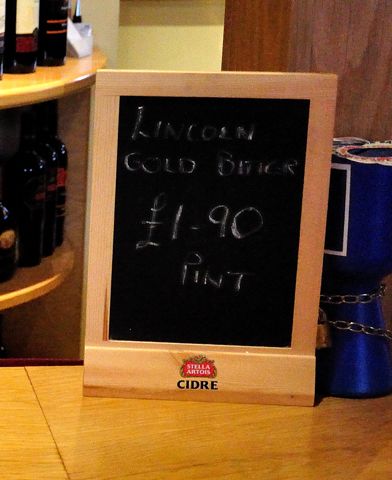 LINCOLN
GOLD BITTER
£1-90
PINT
STELLA
ARTOIS
CIDRE